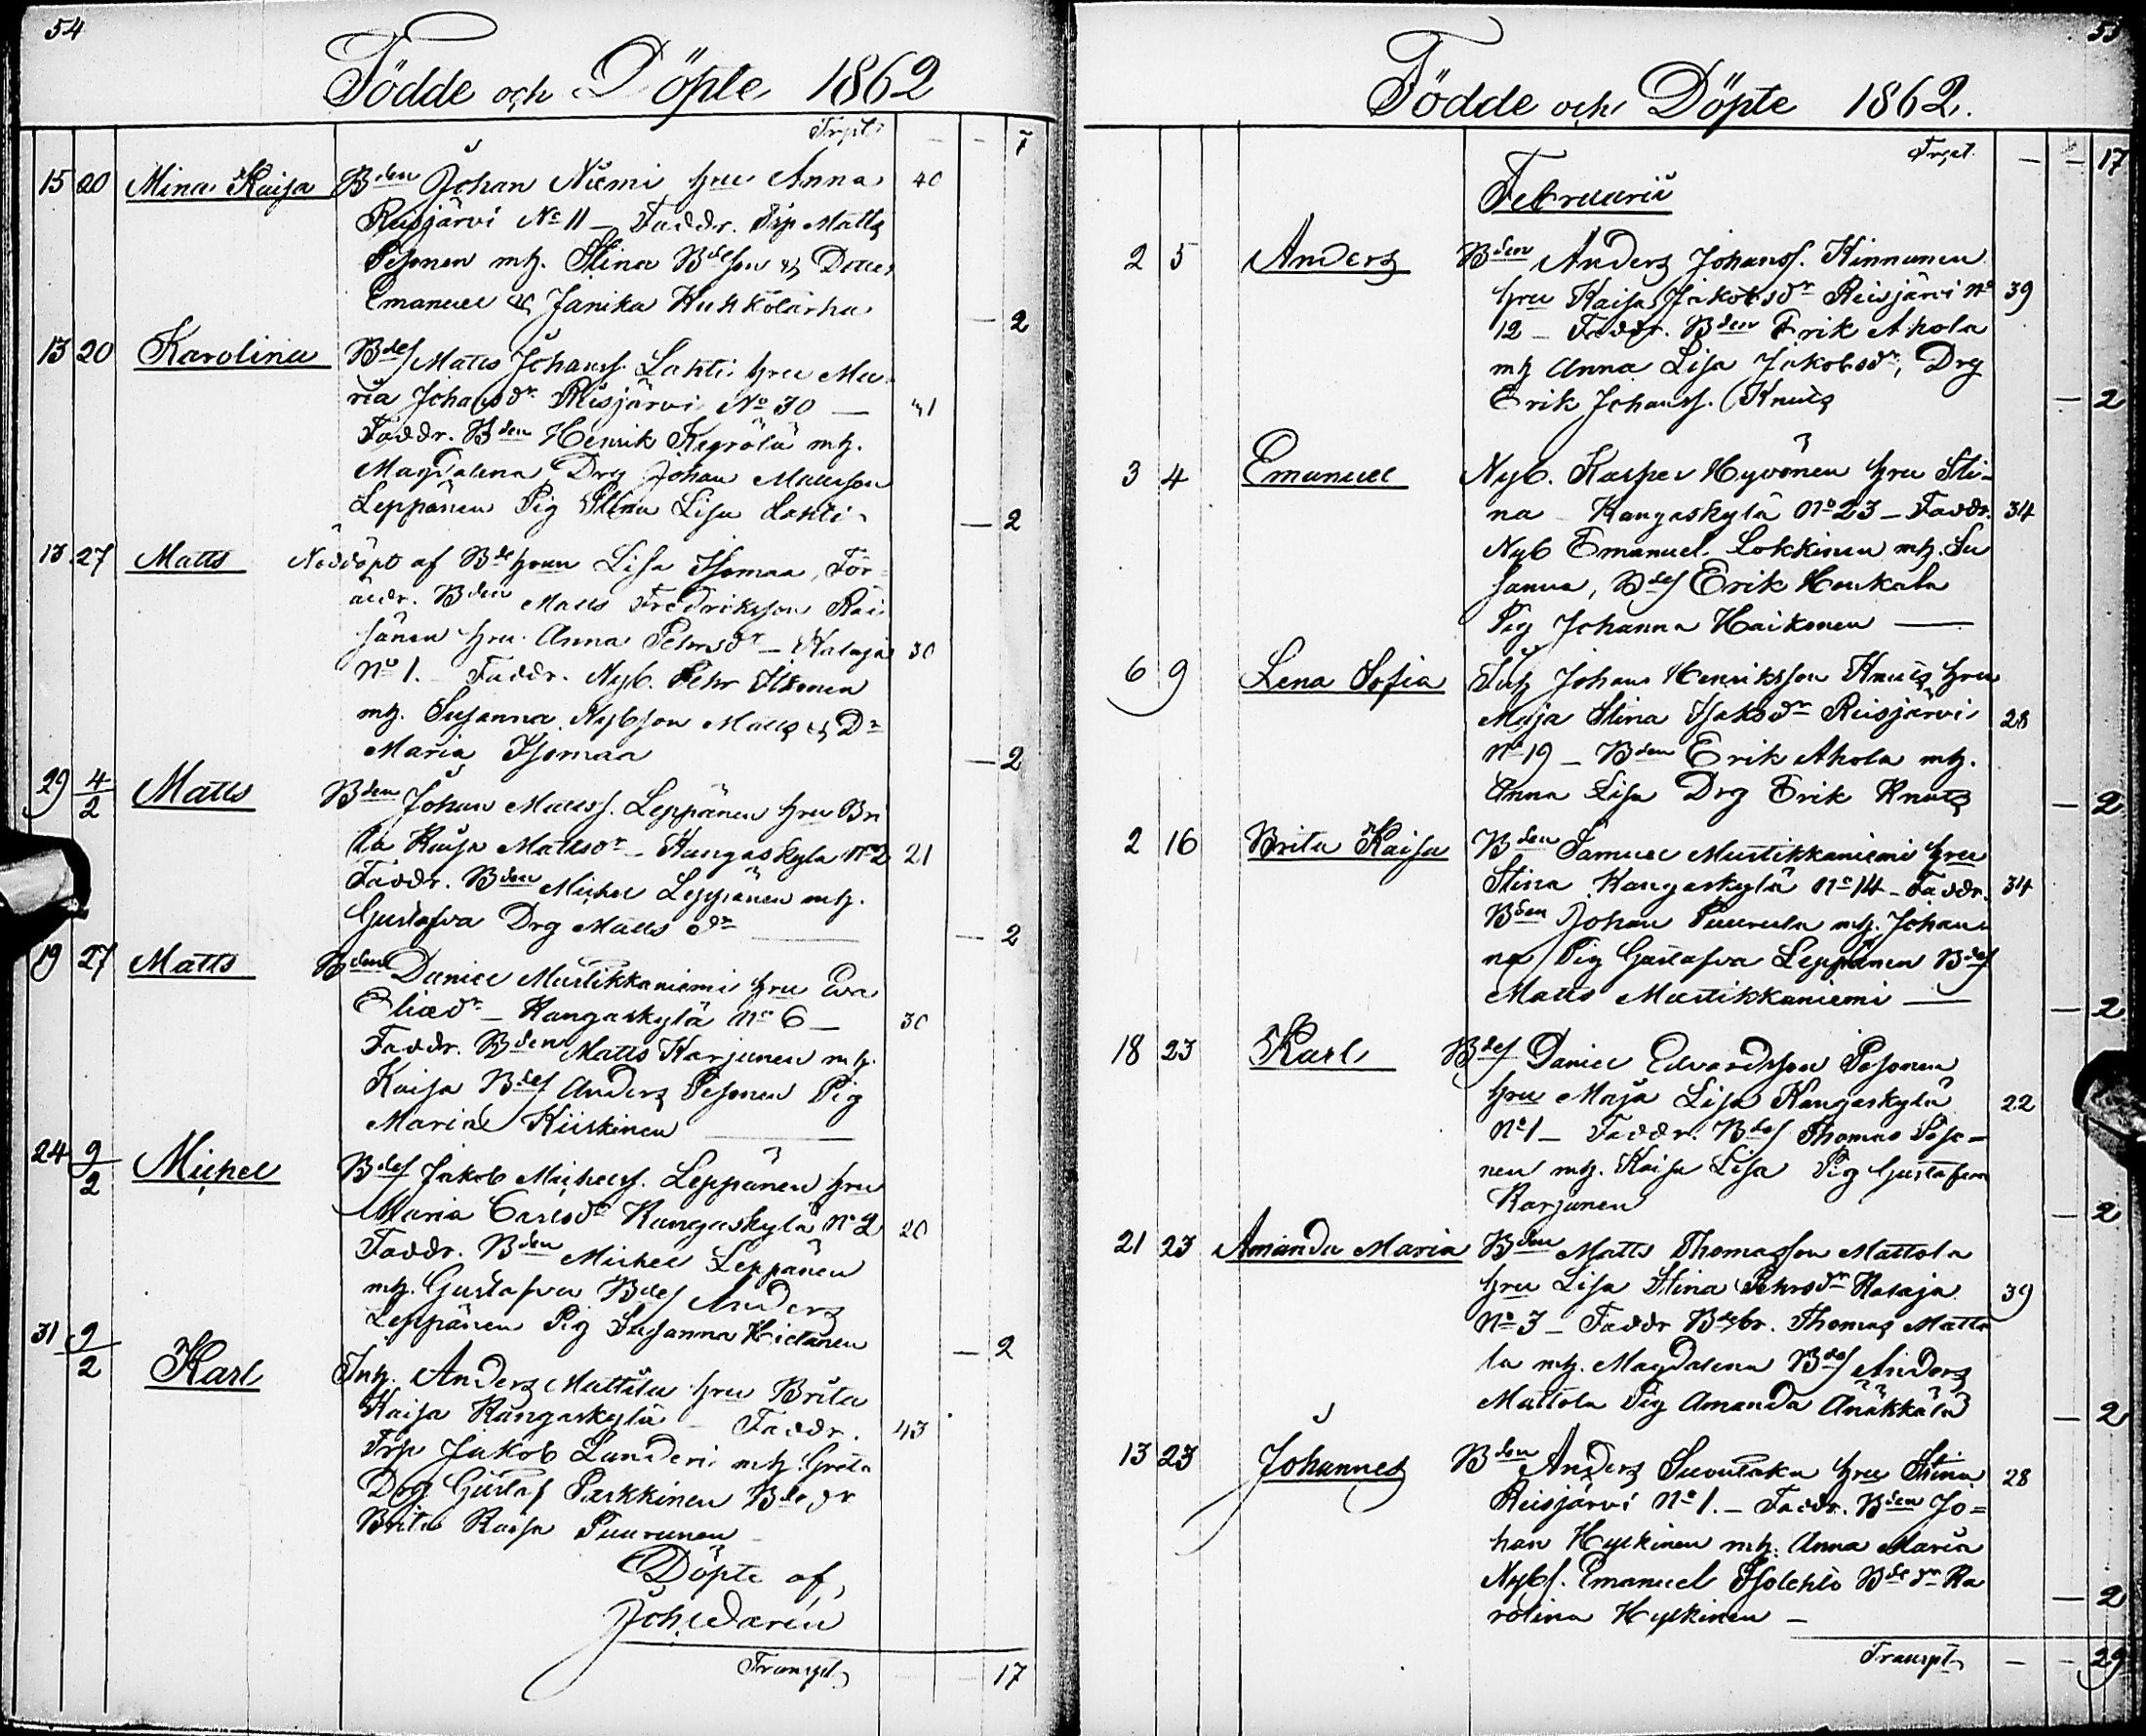 54
Födde och Döpte 1862
Trpt. — — 7
15 20 Mina Kaisa Bden Johan Niemi hru Anna 40
Reisjärvi No 11 — Faddr. Trp Matts
Pesonen mh. Stina Bdeson & Dotter
Emanuel & Janika Kuhkolarha — 2
13 20 Karolina Bdes Matts Johanss. Lahti hru Ma-
ria Johansdr Reisjärvi No 30 — 41
Faddr. Bden Henrik Kegrölä mh.
Magdalena Drg Johan Mattsson
Leppänen Pig Stina Lisa Lahti — 2
13 27 Matts Nöddöpt af Bdehrun Lisa Isomaa, För-
äldr. Bden Matts Fredriksson Räi-
sänen hru Anna Pehrsdr — Kalaja 30
No 1. — Faddr. Nyb. Pehr Ilkonen
mh. Susanna Nybson Matts & Dr
Maria Isomaa — 2
29 4/2 Matts Bden Johan Mattss. Leppänen hru Bri
ta Kaisa Mattsdr — Kangaskylä No 2 21
Faddr. Bden Michel Leppänen mh.
Gustafva Drg Matts dr — 2
19 27 Matts Bden Daniel Mustikkaniemi hru Eva
Eliædr — Kangaskylä No 6 — 30
Faddr. Bden Matts Karjunen mh.
Kaisa Bdes Anders Pesonen Pig
Maria Kiiskinen
24 9/2 Michel Bdes Jakob Michelss. Leppänen hru
Maria Carlsdr Kangaskylä No 2 20
Faddr. Bden Michel Leppänen
mh. Gustafva Bdes Anders
Leppänen Pig Susanna Hietanen — 2
31 9/2 Karl Inh. Anders Mattila hru Brita
Kaisa Kangaskylä — Faddr. 43
Trp Jakob Landen mh. Greta
Drg Gustaf Parkkinen Bdedr
Brita Kaisa Puurunen
Döpte af
Joh. Daren
Transpt — — 17
55
Födde och Döpte 1862.
Trpt. — — 17
Februarii
2 5 Anders Bden Anders Johanss. Kinnunen
hru Kaisa Jakobsdr Reisjärvi No 39
12 — Faddr. Bden Erik Ahola
mh Anna Lisa Jakobsdr, Drg
Erik Johanss. Knuts — 2
3 4 Emanuel Nyb. Kasper Hyvönen hru Sti-
na Kangaskylä No 23 — Faddr. 34
Nyb Emanuel Lokkinen mh. Su
sanna, Bdes Erik Honkala
Pig Johanna Haikonen —
6 9 Lena Sofia Inh Johan Henriksson Knuts hru
Maja Stina Isaksdr Reisjärvi 28
No 19 — Bden Erik Ahola mh.
Anna Lisa Drg Erik Knuts — 2
2 16 Brita Kaisa Bden Samuel Mustikkaniemi hru
Stina Kangaskylä No 14 — Faddr. 34
Bden Johan Puurula mh. Johan
na Pig Gustafva Leppänen Bdes
Matts Mustikkaniemi — — 2
18 23 Karl Bdes Daniel Edvardsson Pesonen
hru Maja Lisa Kangaskylä 22
No 1 — Faddr. Bdes Thomas Peso-
nen mh. Kaisa Lisa Pig Gustafva
Karjunen — 2
21 23 Amanda Maria Bden Matts Thomasson Mattola
hru Lisa Stina Pehrsdr Kalaja 39
No 3 — Faddr Bdebr. Thomas Matto
la mh. Magdalena Bdes Anders
Mattola Pig Amanda Änäkkälä — 2
13 23 Johannes Bden Anders Suvulaka hru Stina 28
Reisjärvi No 1. — Faddr. Bden Jo=
han Hylkinen mh. Anna Maria
Nybs. Emanuel Isolehto Bdedr Ka
rolina Hylkinen — — 2
Transpt — — 29